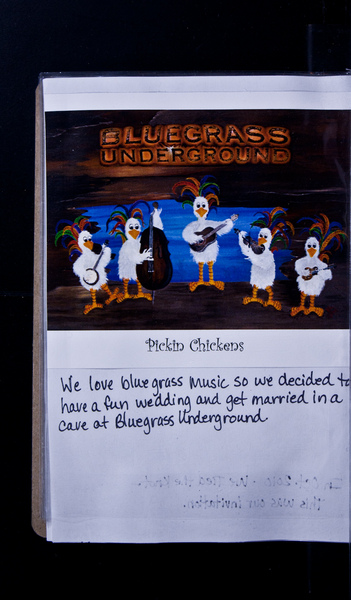 BLUEGRASS
UNDERGROUND
Pickin Chickens
We love bluegrass music so we decided to
have a fun wedding and get married in a
cave at Bluegrass Underground
This was our invitation.